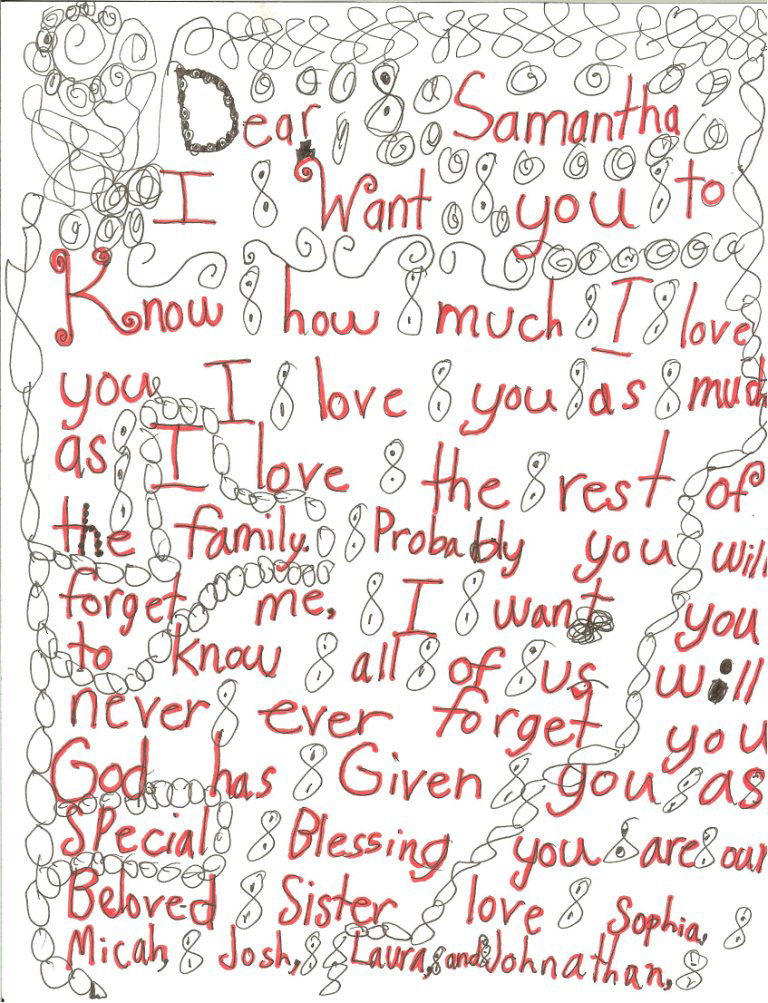 Dear Samantha
I Want you to
Know how much I love
you I love you as much
as I love the rest of
the family. Probably you will
forget me, I want you
to know all of us will
never ever forget you
God has Given you as
Special Blessing you are our
Beloved Sister love Sophia,
Micah, Josh, Laura, and Johnathan,